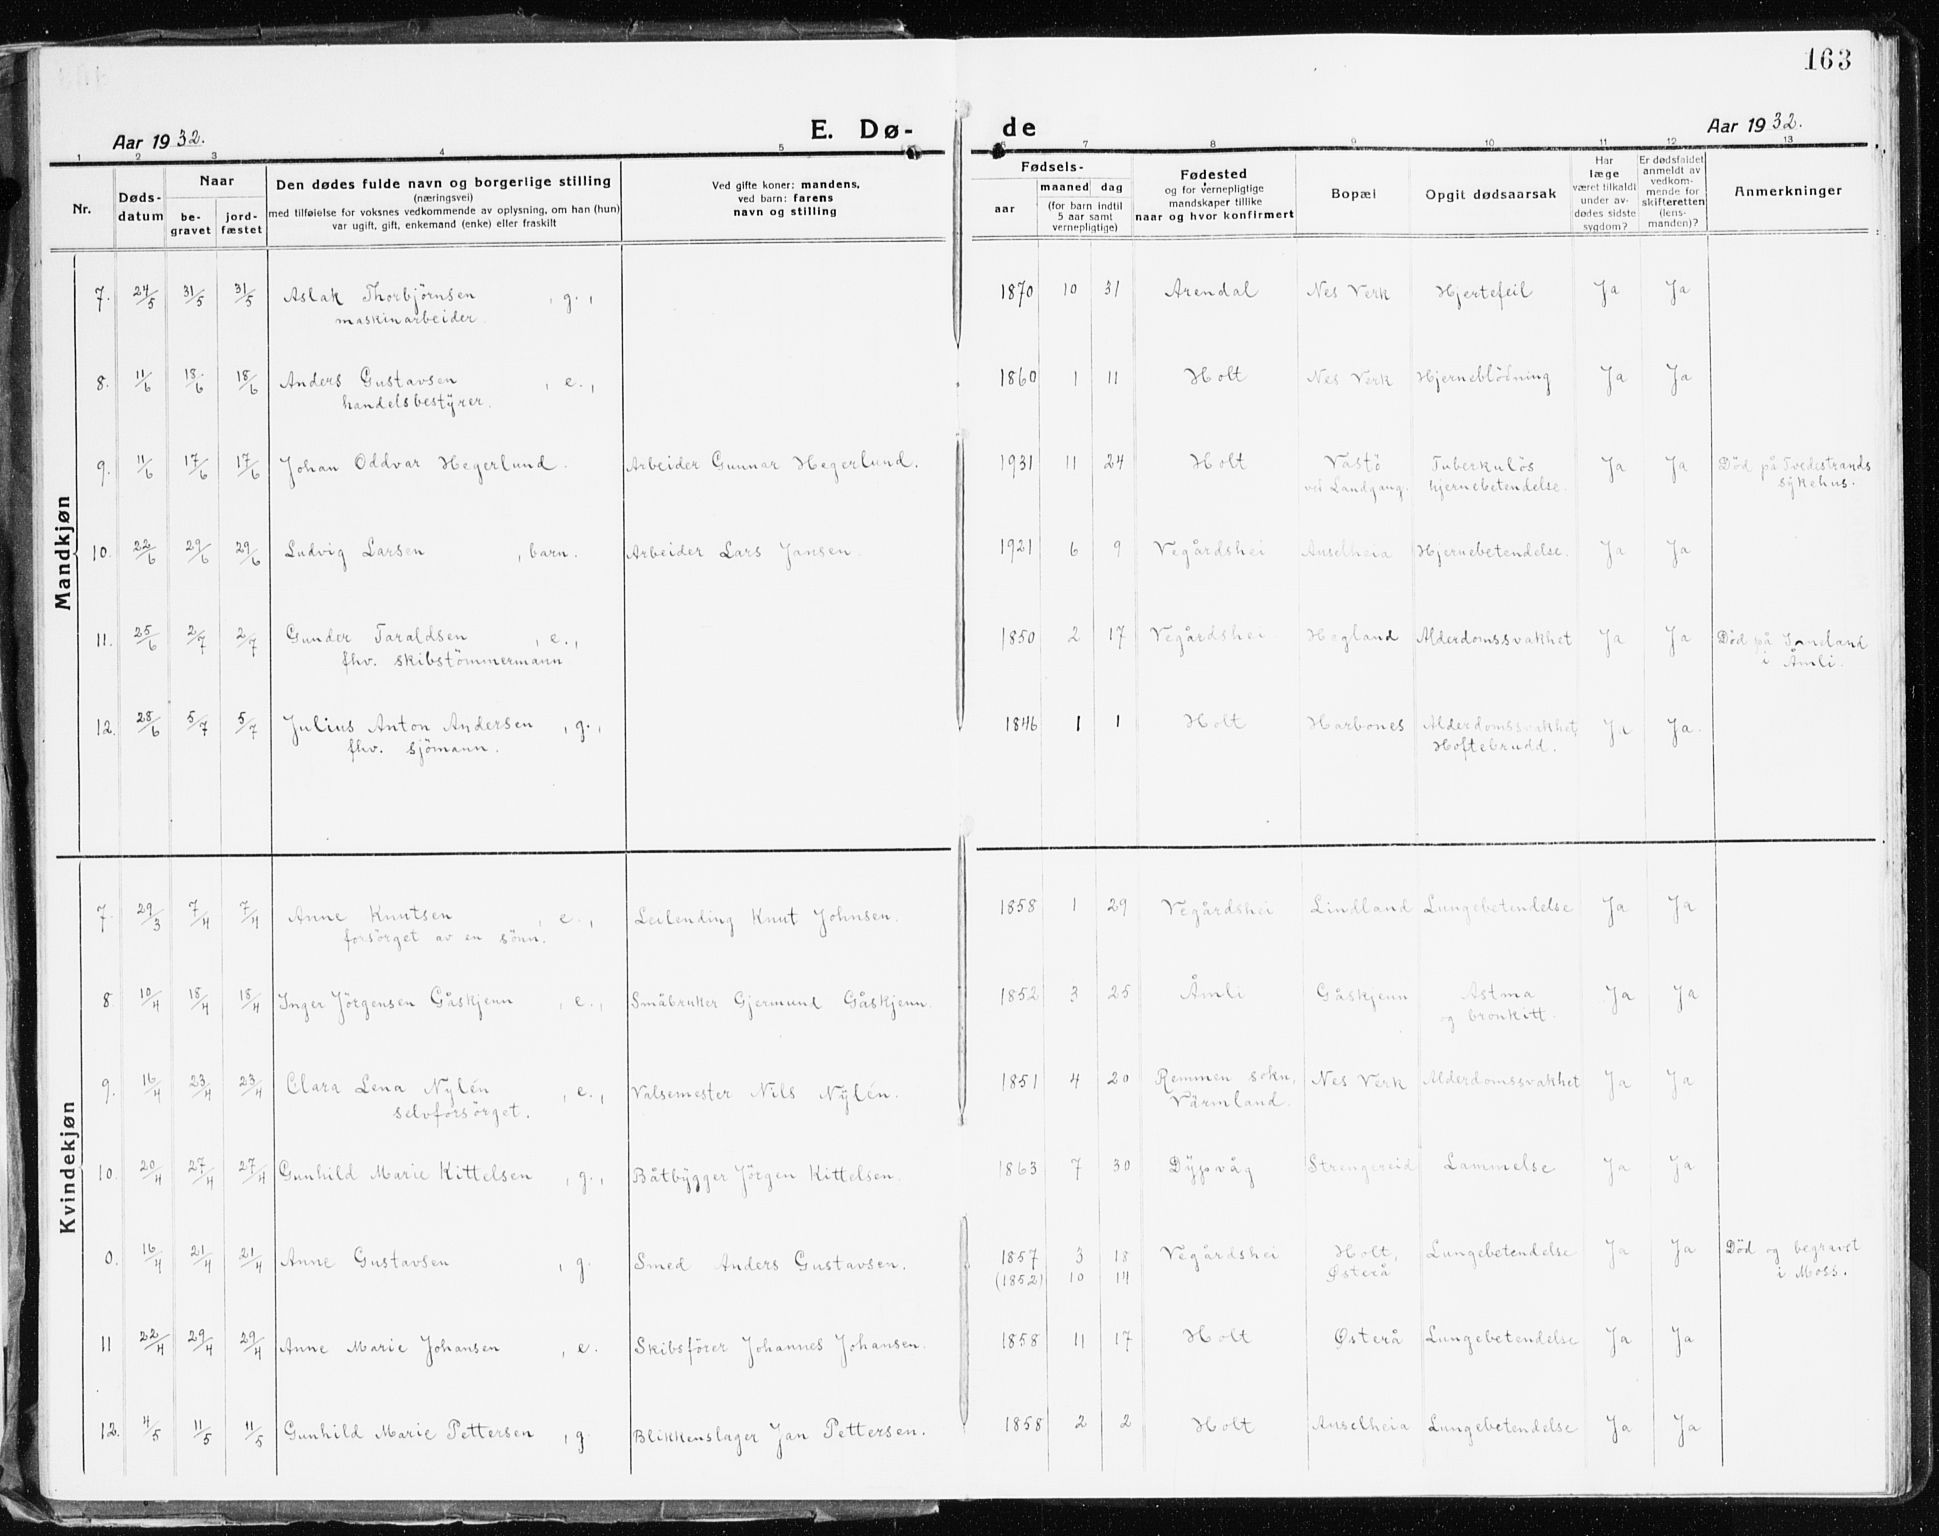 163
Aar 1932.
E. Dø-
de
Aar 1932.
1 2 3 4 5 6 7 8 9 10 11 12 13
Nr.
Døds-
datum
Naar
be-
gravet
jord-
fæstet
Den dødes fulde navn og borgerlige stilling
(næringsvei)
med tilføielse for voksnes vedkommende av oplysning, om han (hun)
var ugift, gift, enkemand (enke) eller fraskilt
Ved gifte koner: mandens,
ved barn: farens
navn og stilling
Fødsels-
aar
maaned dag
(for barn indtil
5 aar samt
vernepligtige)
Fødested
og for vernepligtige
mandskaper tillike
naar og hvor konfirmert
Bopæl
Opgit dødsaarsak
Har
læge
været tilkaldt
under av-
dødes sidste
sygdom?
Er dødsfaldet
anmeldt av
vedkom-
mende for
skifteretten
(lens-
manden)?
Anmerkninger
Mandkjøn
7. 24/5 31/5 31/5 Aslak Thorbjörnsen , g., 1870 10 31 Arendal Nes Verk Hjertefeil Ja Ja
maskinarbeider.
8. 11/6 18/6 18/6 Anders Gustavsen , e., 1860 1 11 Holt Nes Verk Hjerneblödning Ja Ja
handelsbestÿrer.
9. 11/6 17/6 17/6 Johan Oddvar Hegerlund. Arbeider Gunnar Hegerlund. 1931 11 24 Holt Vastö Tuberkulös Ja Ja Död på Tvedestrands
ved Landgang. hjernebetendelse. sÿkehus.
10. 22/6 29/6 29/6 Ludvig Larsen , barn. Arbeider Lars Jansen. 1921 6 9 Vegårdshei Auselheia Hjernebetendelse. Ja Ja
11. 25/6 2/7 2/7 Gunder Taraldsen , e., 1850 2 17 Vegårdshei Hegland Alderdomssvakhet Ja Ja Död på
fhv. skibstömmermann i Åmli.
12. 28/6 5/7 5/7 Julius Anton Andersen , g., 1846 1 1 Holt Harbones Alderdomssvakhet, Ja Ja.
fhv. sjömann. Hoftebrudd.
Kvindekjøn
7. 29/3 7/4 7/4 Anne Knutsen , e., Leilending Knut Johnsen. 1858 1 29 Vegårdshei Lindland Lungebetendelse Ja Ja
forsörget av en sönn.
8. 10/4 18/4 18/4 Inger Jörgensen Gåskjenn , e., Småbruker Gjermund Gåskjenn. 1852 3 25 Åmli Gåskjenn Astma Ja Ja
og bronkitt.
9. 16/4 23/4 23/4 Clara Lena Nÿlén , e., Valsemester Nils Nÿlén. 1851 4 20 Remmen sokn, Nes Verk Alderdomssvakhet Ja Ja
selvforsörget. Värmland.
10. 20/4 27/4 27/4 Gunhild Marie Kittelsen , g., Båtbÿgger Jörgen Kittelsen. 1863 7 30 Dÿpvåg Strengereid Lammelse Ja Ja
0. 16/4 21/4 21/4 Anne Gustavsen , g. Smed Anders Gustavsen. 1857 3 18 Vegårdshei Holt, Lungebetendelse Ja Ja Död og begravet
(1852) 10 14 Østerå i Moss.
11 22/4 29/4 29/4 Anne Marie Johansen , e. Skibsförer Johannes Johansen. 1858 11 17 Holt Østerå Lungebetendelse Ja Ja
12. 4/5 11/5 11/5 Gunhild Marie Pettersen , g. Blikkenslager Jan Pettersen. 1858 2 2 Holt Auselheia Lungebetendelse Ja Ja